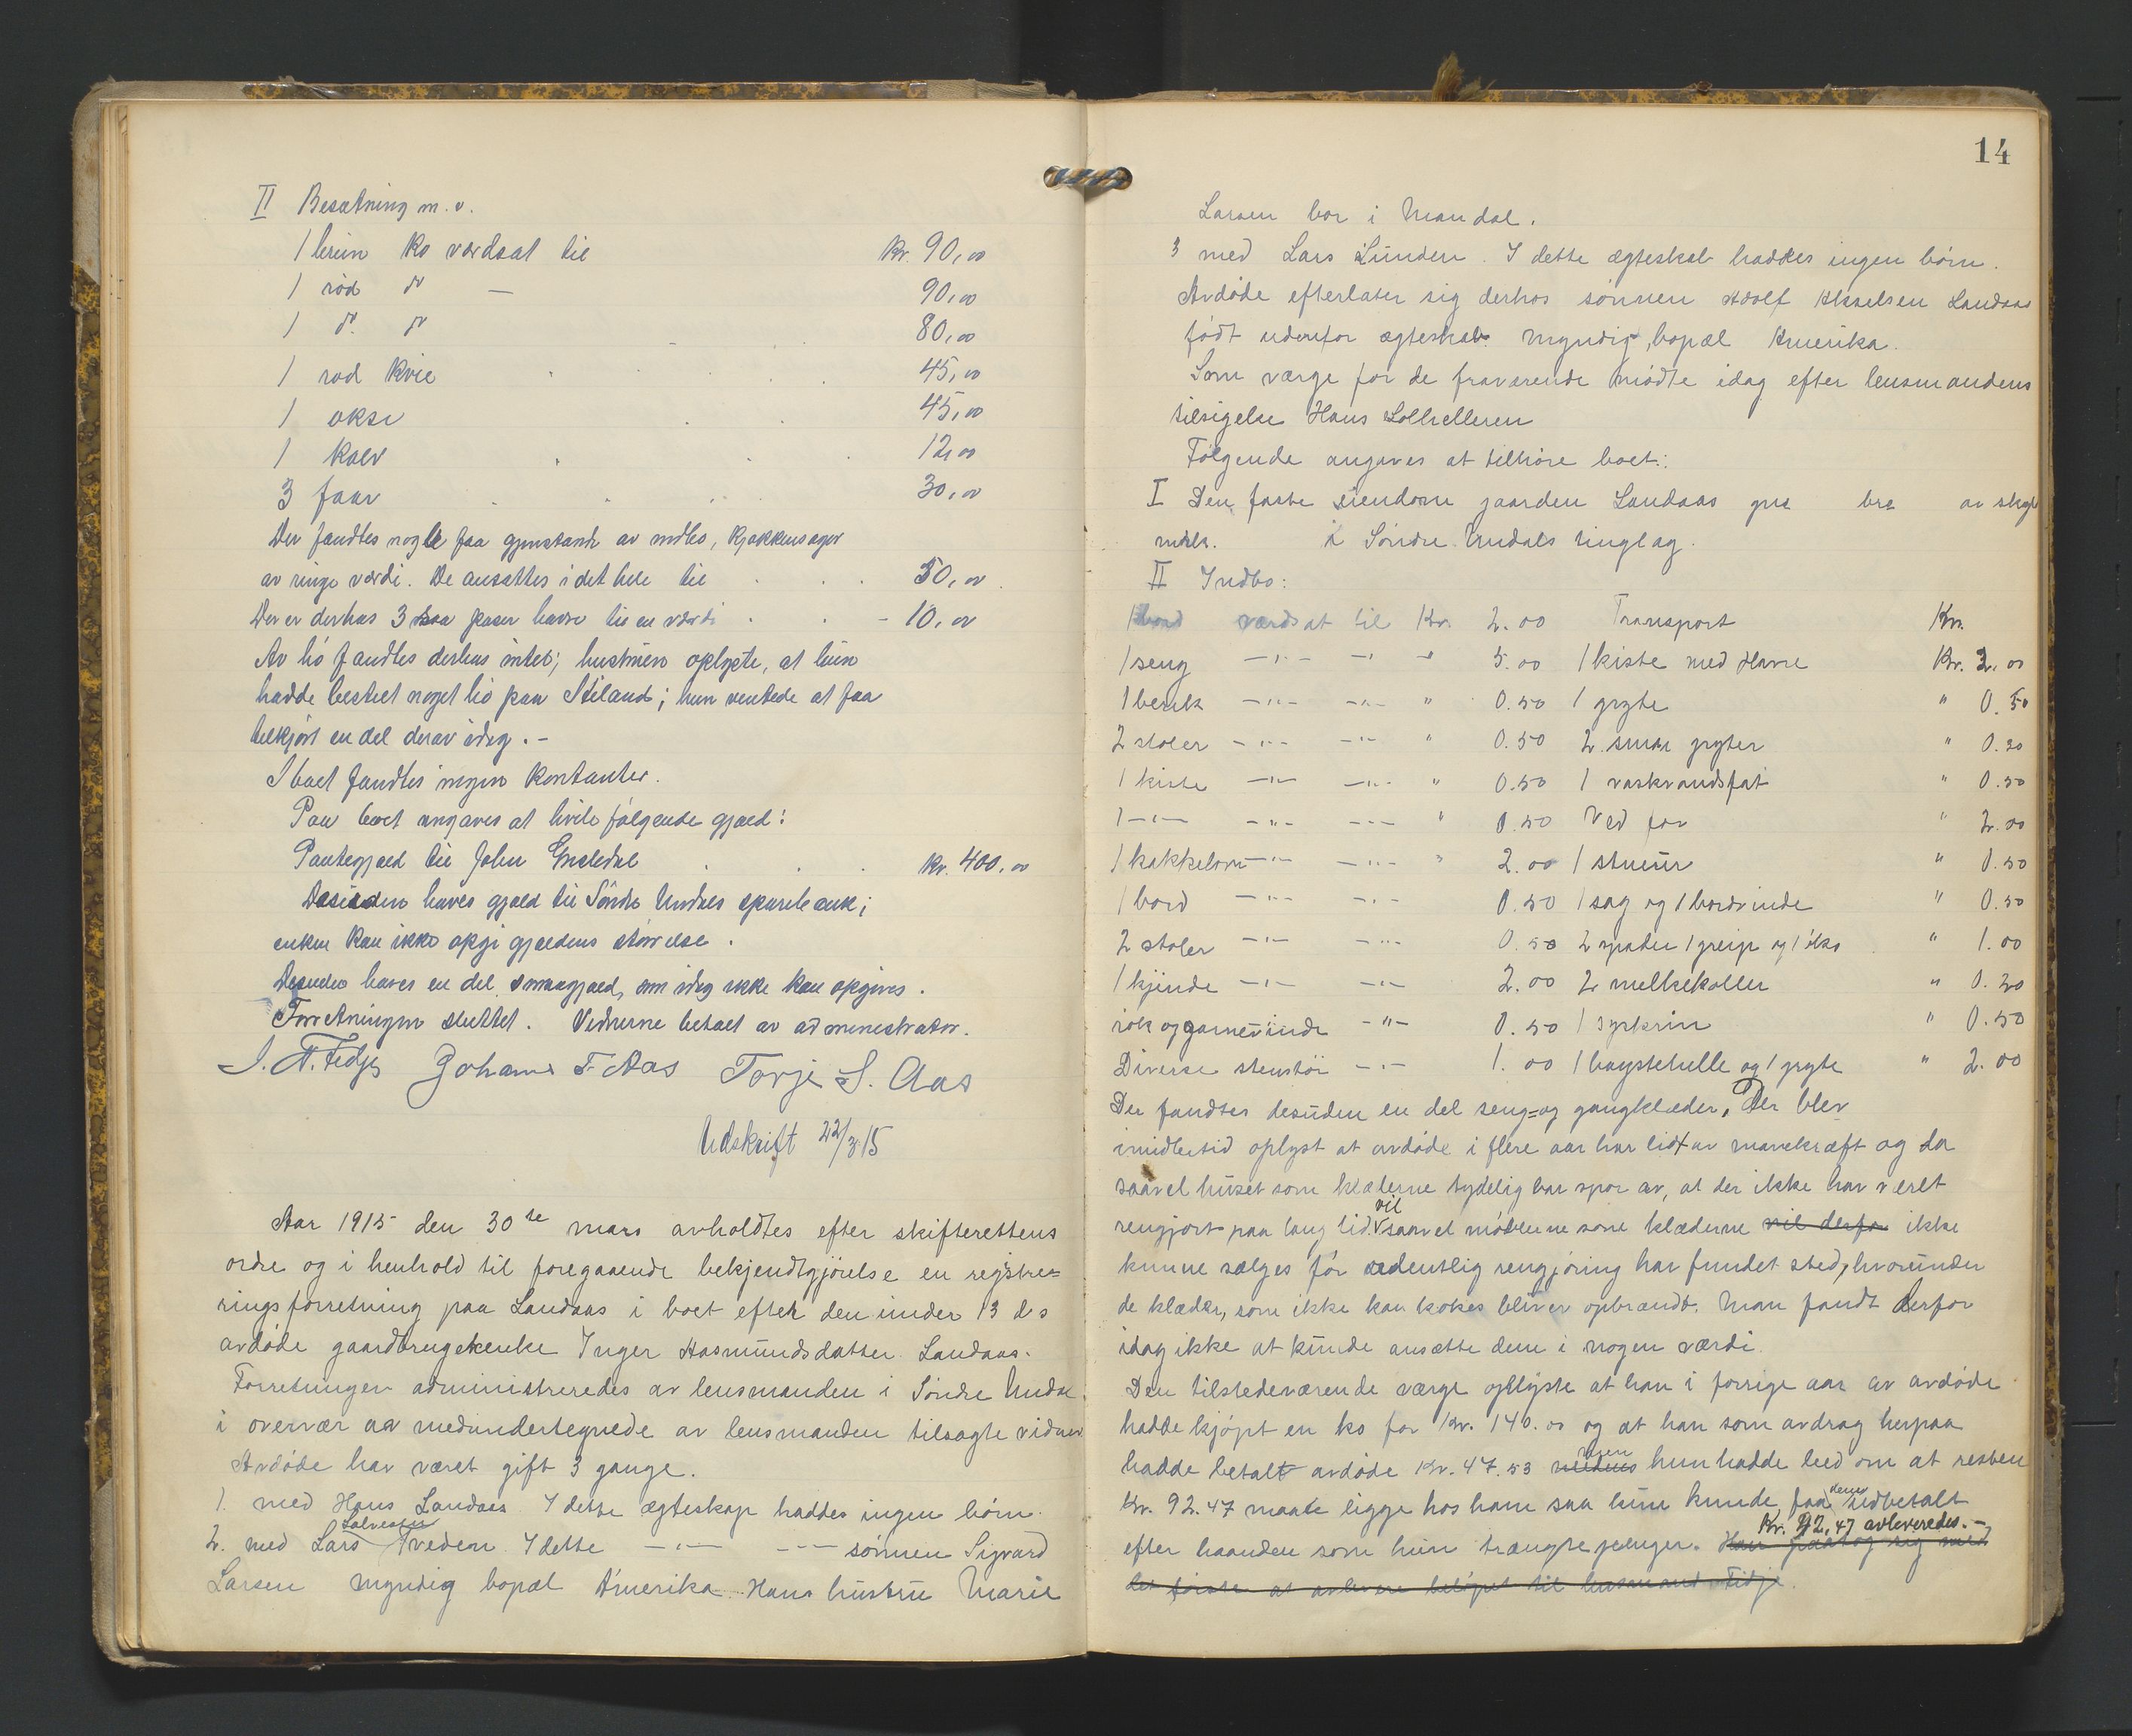 II Besætning m. v.
1 brun ko værdsat til kr. 90,00
1 rød do — 90,00
1 do. do 80,00
1 rød kvie 45,00
1 okse 45,00
1 kalv 12,00
3 faar 30,00
Der fandtes nogle faa gjenstande av møbler, kjøkkensager
av ringe værdi. De ansættes i det hele til 50,00
Der er derhos 3 poser havre til en værdi - 10,00
Av hø fandtes derhos intet; hustruen oplyste, at hun
hadde bestilt noget hø paa Stiland; hun ventede at faa
tilkjørt en del derav idag. -
I boet fandtes ingen kontanter.
Paa boet angaves at hvile følgende gjæld:
Pantegjæld til John kr. 400,00
Desuden haves gjæld til Søndre Undals sparebank;
enken kan ikke opgi gjældens størrelse.
Desuden haves en del smaagjæld, som idag ikke kan opgives.
Forretningen sluttet. Vidnerne betalt av administrator.
J. N. Fedje Johannes T. Aas Torje S. Aas
Udskrift 22/3 15
Aar 1915 den 30te mars avholdtes efter skifterettens
ordre og i henhold til foregaaende bekjendtgjørelse en registre=
ringsforretning paa Landaas i boet efter den under 13 ds
avdøde gaardbrugerenke Inger Aasmundsdatter Landaas.
Forretningen administreredes av lensmanden i Søndre Undal
i overvær av medundertegnede av lensmanden tilsagte vidner
Avdøde har været gift 3 gange.
1. med Hans Landaas. I dette ægteskap haddes ingen børn.
Salvesen
2. med Lars Tveden. I dette —"— —"— sønnen Sigvard
Larsen myndig bopæl Amerika. Hans hustru Marie
14
Larsen bor i Mandal.
3 med Lars Lunden. I dette ægteskab haddes ingen børn.
Avdøde efterlater sig derhos sønnen Adolf Akselsen Landaas
født udenfor ægteskab. myndig, bopæl Amerika.
Som værge for de fraværende mødte idag efter lensmandens
tilsigelse Hans Solhelleren
Følgende angaves at tilhøre boet:
I Den faste eiendom gaarden Landaas gns bns av skyld
mrk. i Søndre Undals tinglag.
II Indbo:
1 bord værdsat til Kr. 2.00 Transport Kr.
1 seng —"— —"— " 5.00 1 kiste med Havre Kr. 2.00
1 benk —"— —"— " 0.50 1 gryte " 0.50
2 stoler —"— —"— " 0.50 2 smaa gryter " 0.20
1 kiste —"— —"— " 0.50 1 vaskvandsfat " 0.50
1 —"— —"— —"— " 0.50 Ved for " 2.00
1 kakkelovn —"— —"— " 2.00 1 stueur " 0.50
1 bord —"— —"— 0.50 1 sag og 1 bordvinde " 0.50
2 stoler —"— —"— 0.50 2 spader 1 greip og 1 øks " 1.00
1 kjinde —"— —"— 2.00 2 melkekoller " 0.20
rok og garnevinde —"— 0.50 1 syskrin " 0.50
Diverse stentøi —"— 1.00 1 baystehelle og 1 gryte " 2.00
Der fandtes desuden en del seng= og gangklæder. Der blev
imidlertid oplyst at avdøde i flere aar har lidt av mavekræft og da
saavel huset som klæderne tydelig bar spor av, at der ikke har været
vil
rengjort paa lang tid saavel møblerne som klæderne vil derfor ikke
kunne sælges før ordentlig rengjøring har fundet sted, hvorunder
de klæder, som ikke kan kokes bliver opbrændt. Man fandt derfor
idag ikke at kunde ansætte dem i nogen værdi.
Den tilstedeværende værge oplyste at han i forrige aar av avdøde
hadde kjøpt en ko for Kr. 140.00 og at han som avdrag herpaa
men
hadde betalt avdøde Kr. 47.53 medens hun hadde bed om at resten
Kr. 92.47 maate ligge hos ham saa hun kunde faa dem udbetalt
Kr. 92,47 avleveredes. -
efter haanden som hun trængte penger. Han paatog sig med
det første at avlevere beløpet til lensmand Fidje.